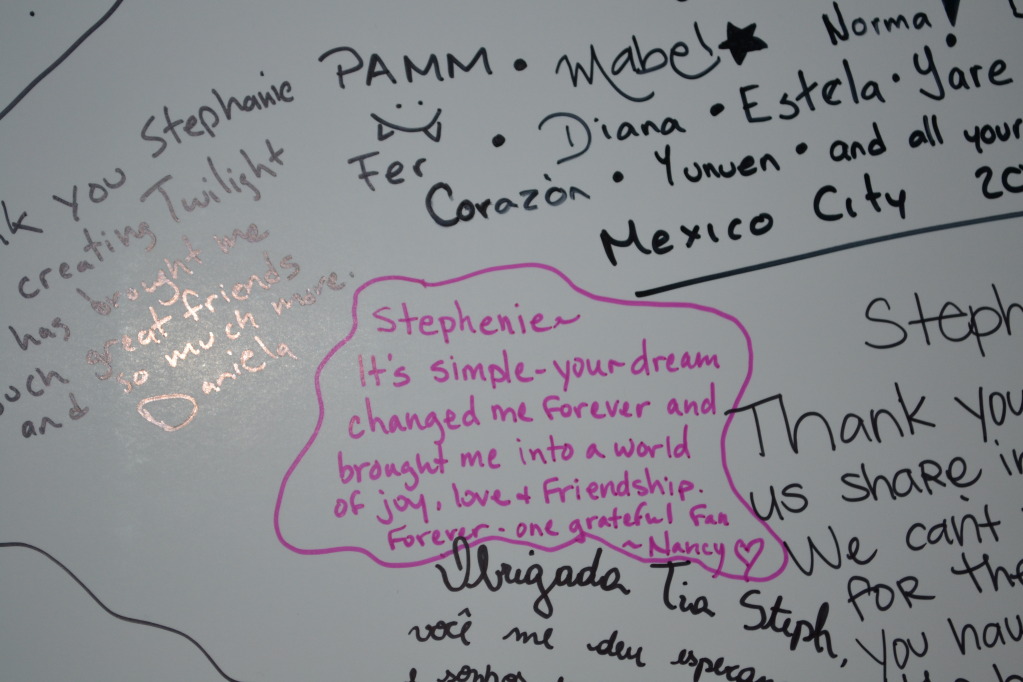 PAMM • Mabel ★ Norma!
Fer • Diana • Estela • Yare
Corazón • Yunuen • and all your
Mexico City
you Stephanie
creating Twilight
has brought me
great friends
and so much more.
Daniela
Stephenie~
It's simple-your dream
changed me forever and
brought me into a world
of joy, love + Friendship.
Forever - one grateful Fan
~Nancy ♡
Thank you
us share
We can't
for
you
Obrigada Tia Steph,
você me deu
e sonhos